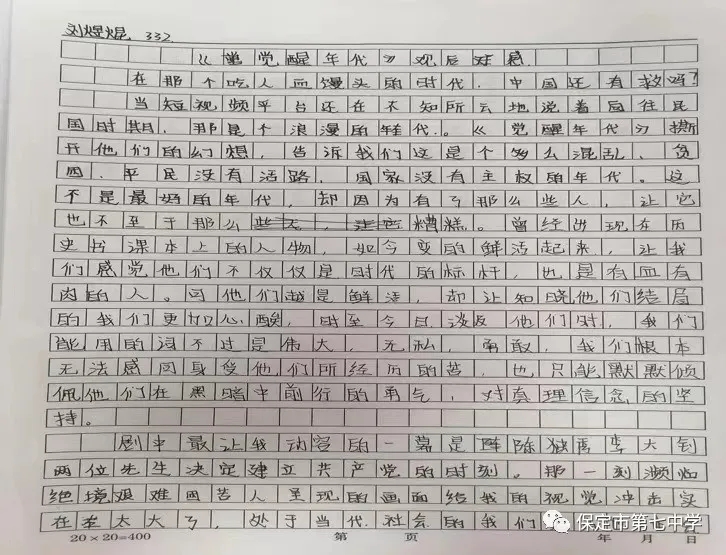 刘煜焜 332
《觉醒年代》观后感
在那个吃人血馒头的时代,中国还有救吗?
当短视频平台还在不知所云地说着向往民
国时期,那是个浪漫的年代。《觉醒年代》撕
开他们的幻想,告诉我们这是个多么混乱、贫
困、平民没有活路,国家没有主权的年代。这
不是最好的年代,却因为有了那么些人,让它
也不至于那么糟糕。曾经出现在历
史书课本上的人物,如今变的鲜活起来,让我
们感觉他们不仅仅是时代的标杆,也是有血有
肉的人。可他们越是鲜活,却让知晓他们结局
的我们更加心酸,时至今日谈及他们时,我们
能用的词不过是伟大,无私,勇敢,我们根本
无法感同身受他们所经历的苦,也只能默默倾
佩他们在黑暗中前行的勇气,对真理信念的坚
持。
剧中最让我动容的一幕是陈独秀李大钊
两位先生决定建立共产党的时刻。那一刻濒临
绝境艰难困苦人呈现的画面给我的视觉冲击实
在太大了,处于当代社会的我们
20×20=400 第 页 年 月 日
保定市第七中学